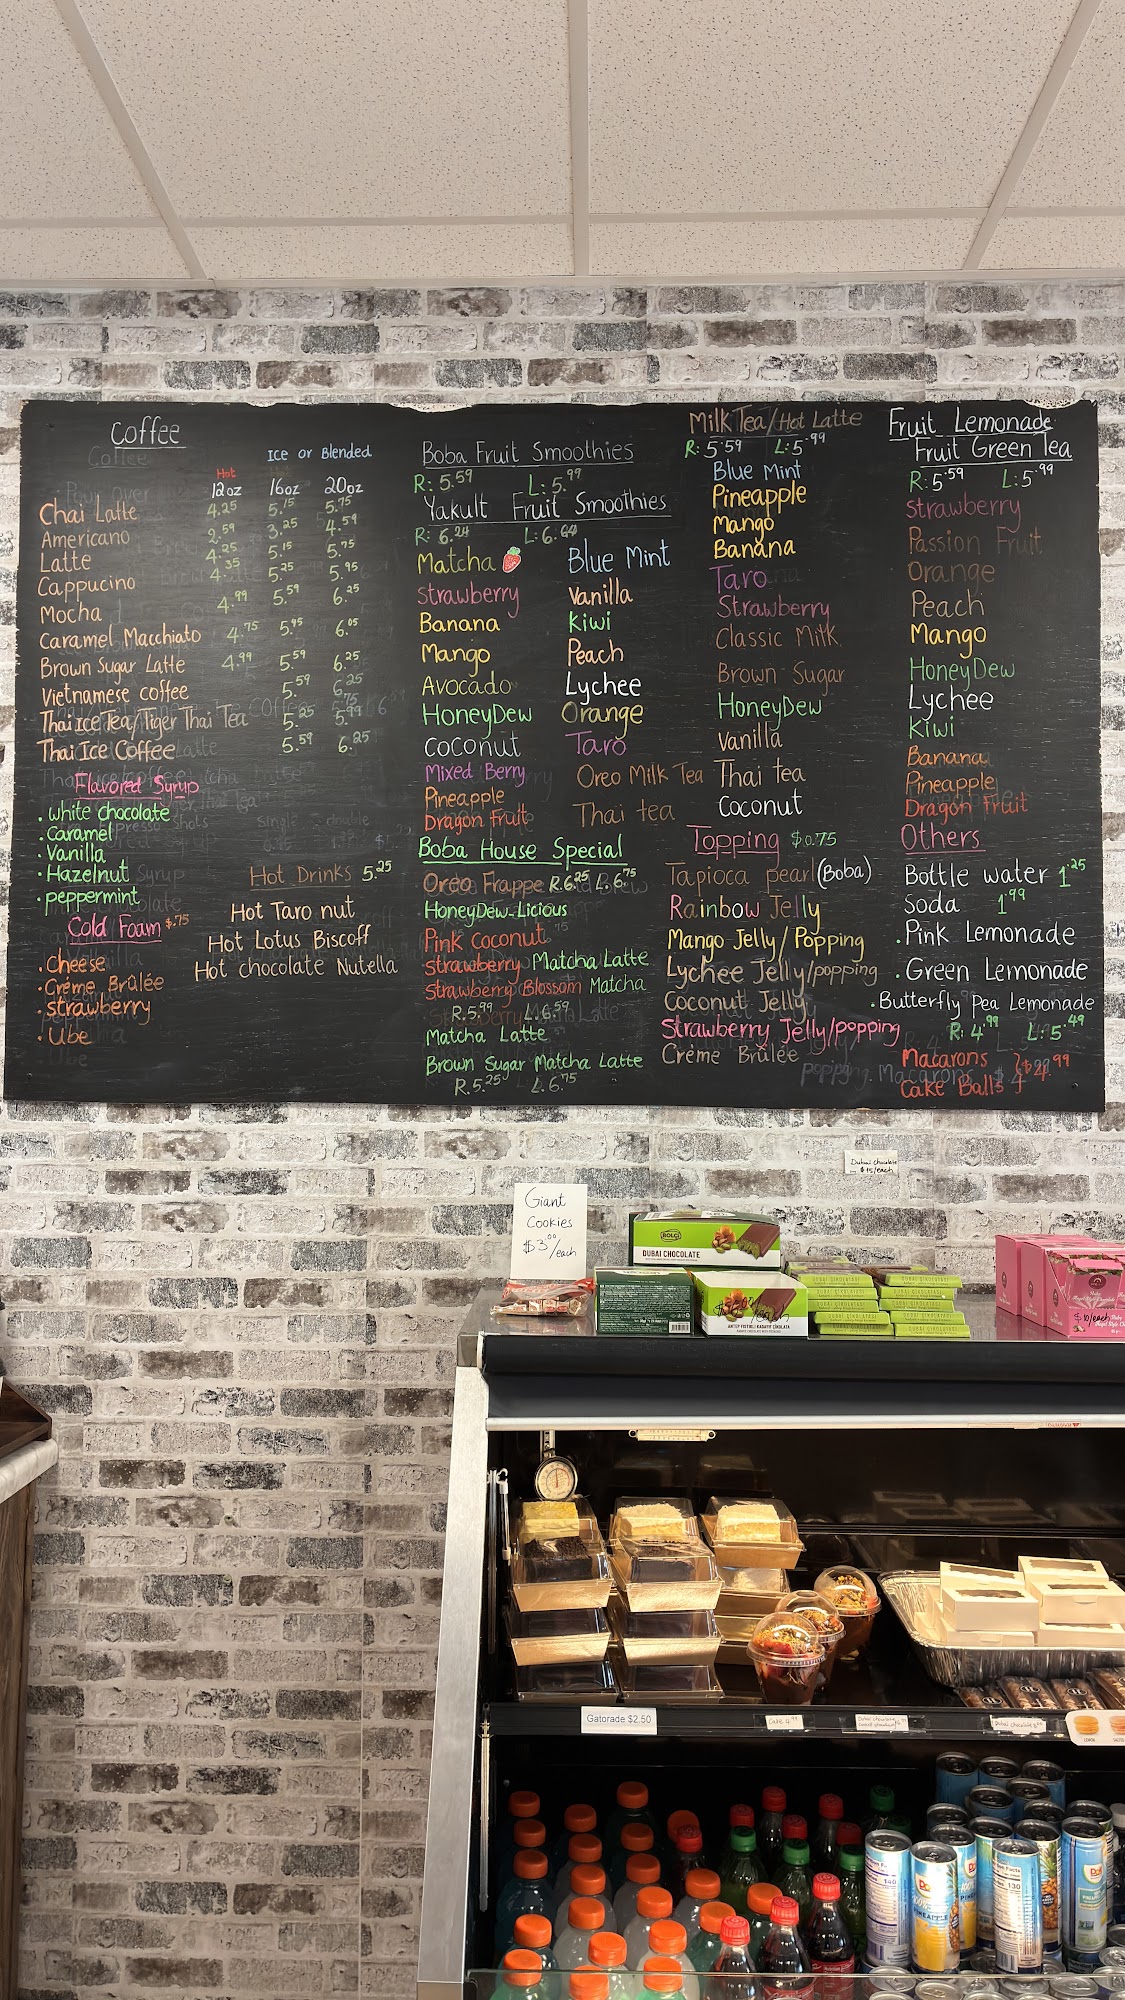 Coffee
Ice or Blended
Hot
12oz 16oz 20oz
Chai Latte 4.25 5.15 5.75
Americano 2.59 3.25 4.59
Latte 4.25 5.15 5.75
Cappucino 4.35 5.25 5.95
Mocha 4.99 5.59 6.25
Caramel Macchiato 4.75 5.95 6.05
Brown Sugar Latte 4.99 5.59 6.25
Vietnamese coffee 5.59 6.25
Thai Ice Tea/Tiger Thai Tea 5.25 5.99
Thai Ice Coffee 5.59 6.25
Flavored Syrup
. white chocolate
. Caramel
. Vanilla
. Hazelnut
. peppermint
Cold Foam $.75
. Cheese
. Créme Brûlée
. strawberry
. Ube
Hot Drinks 5.25
Hot Taro nut
Hot Lotus Biscoff
Hot chocolate Nutella
Boba Fruit Smoothies
R: 5.59 L: 5.99
Yakult Fruit Smoothies
R: 6.24 L: 6.64
Matcha
Strawberry
Banana
Mango
Avocado
HoneyDew
Coconut
Mixed Berry
Pineapple
Dragon Fruit
Blue Mint
Vanilla
Kiwi
Peach
Lychee
Orange
Taro
Oreo Milk Tea
Thai tea
Boba House Special
Oreo Frappe R.6.25 L.6.75
HoneyDew-Licious
Pink Coconut
Strawberry Matcha Latte
Strawberry Blossom Matcha
R.5.99 L.6.59
Matcha Latte
Brown Sugar Matcha Latte
R.5.25 L.6.75
Milk Tea/Hot Latte
R: 5.59 L: 5.99
Blue Mint
Pineapple
Mango
Banana
Taro
Strawberry
Classic Milk
Brown Sugar
HoneyDew
Vanilla
Thai tea
Coconut
Topping $0.75
Tapioca pearl (Boba)
Rainbow Jelly
Mango Jelly/Popping
Lychee Jelly/popping
Coconut Jelly
Strawberry Jelly/popping
Créme Brûlée
Fruit Lemonade
Fruit Green Tea
R: 5.59 L: 5.99
Strawberry
Passion Fruit
Orange
Peach
Mango
HoneyDew
Lychee
Kiwi
Banana
Pineapple
Dragon Fruit
Others
Bottle water 1.25
Soda 1.99
. Pink Lemonade
. Green Lemonade
. Butterfly Pea Lemonade
R: 4.99 L: 5.49
Macarons
Cake Balls } $4.99
Dubai chocolate
$15/each
Giant
Cookies
$3.00/each
BOLÇİ
DUBAI CHOCOLATE
ANTEP FISTIKLI KADAYIF ÇİKOLATA
DUBAI ÇİKOLATASI
$10/each
Gatorade $2.50
Cake 4.99
Dole
PINEAPPLE